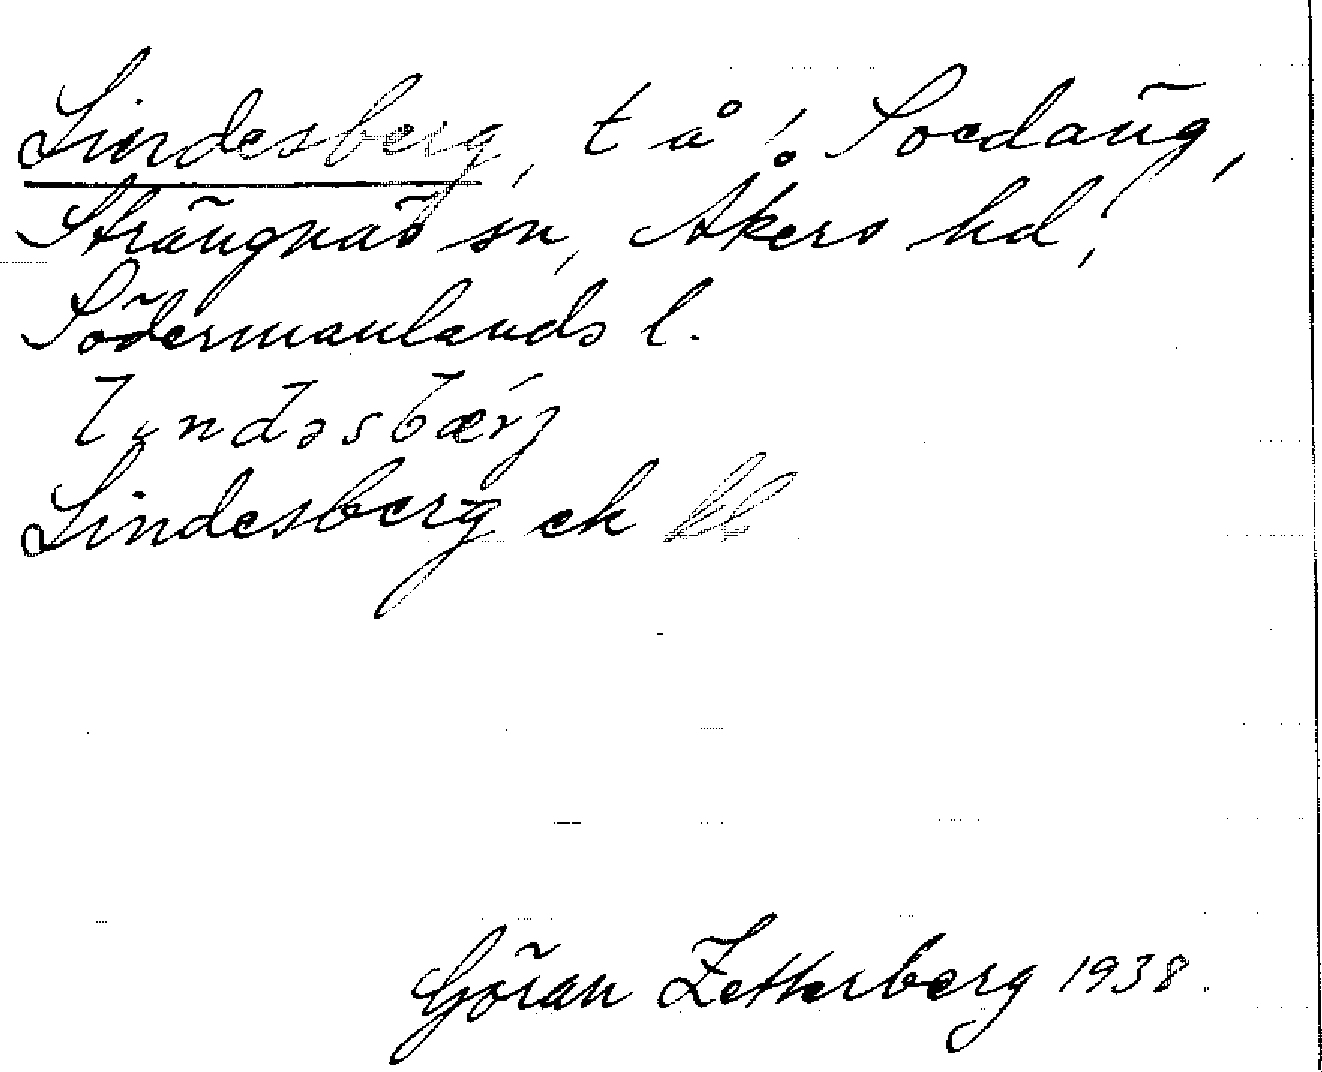 Lindesberg, t å i Soedäng,
Strängnäs sn, Åkers hd,
Södermanlands l.
Lindesberg ek
Göran Zetterberg 1938.